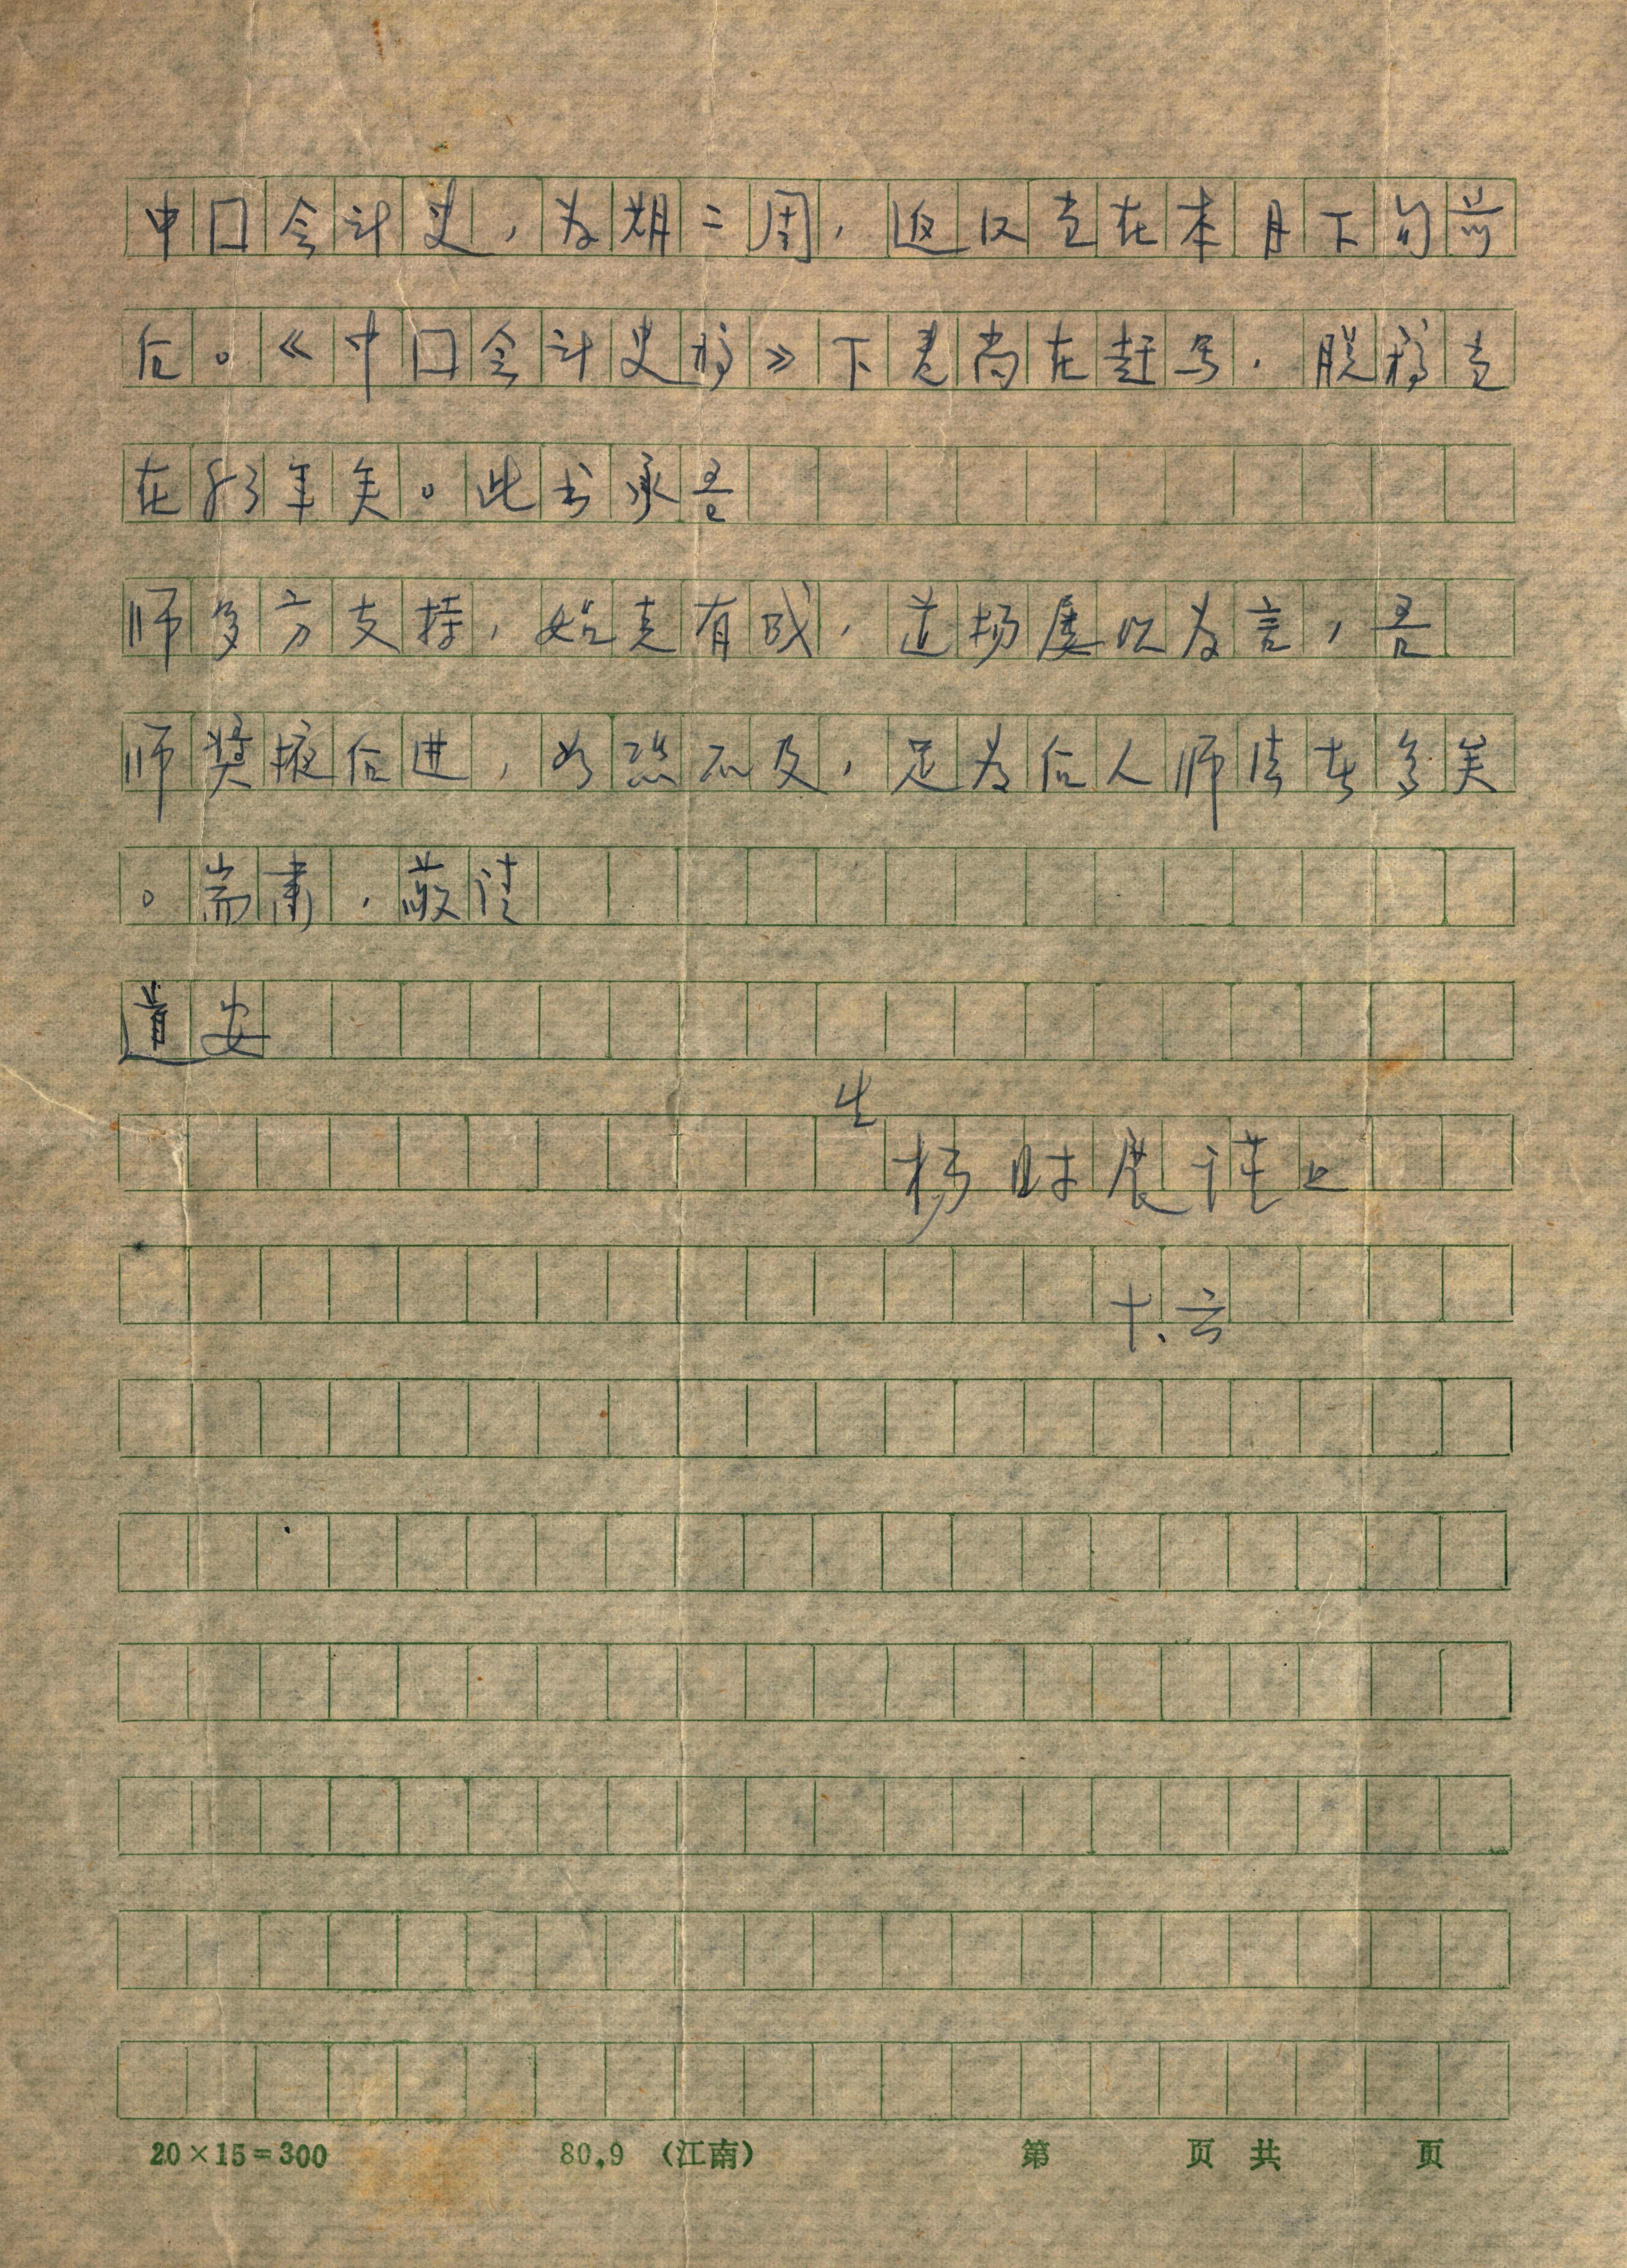 中囗会计史，为期二周，返汉当在本月下旬前
后。《中囗会计史稿》下卷尚在赶写，脱稿当
在83年矣。此书承吾
师多方支持，始克有成，道扬屡以为言，吾
师奖掖后进，如恐不及，足为后人师法者多矣
。耑肃，敬请
道安
生
杨时展谨上
十、六
20×15=300 80.9 (江南) 第 页 共 页